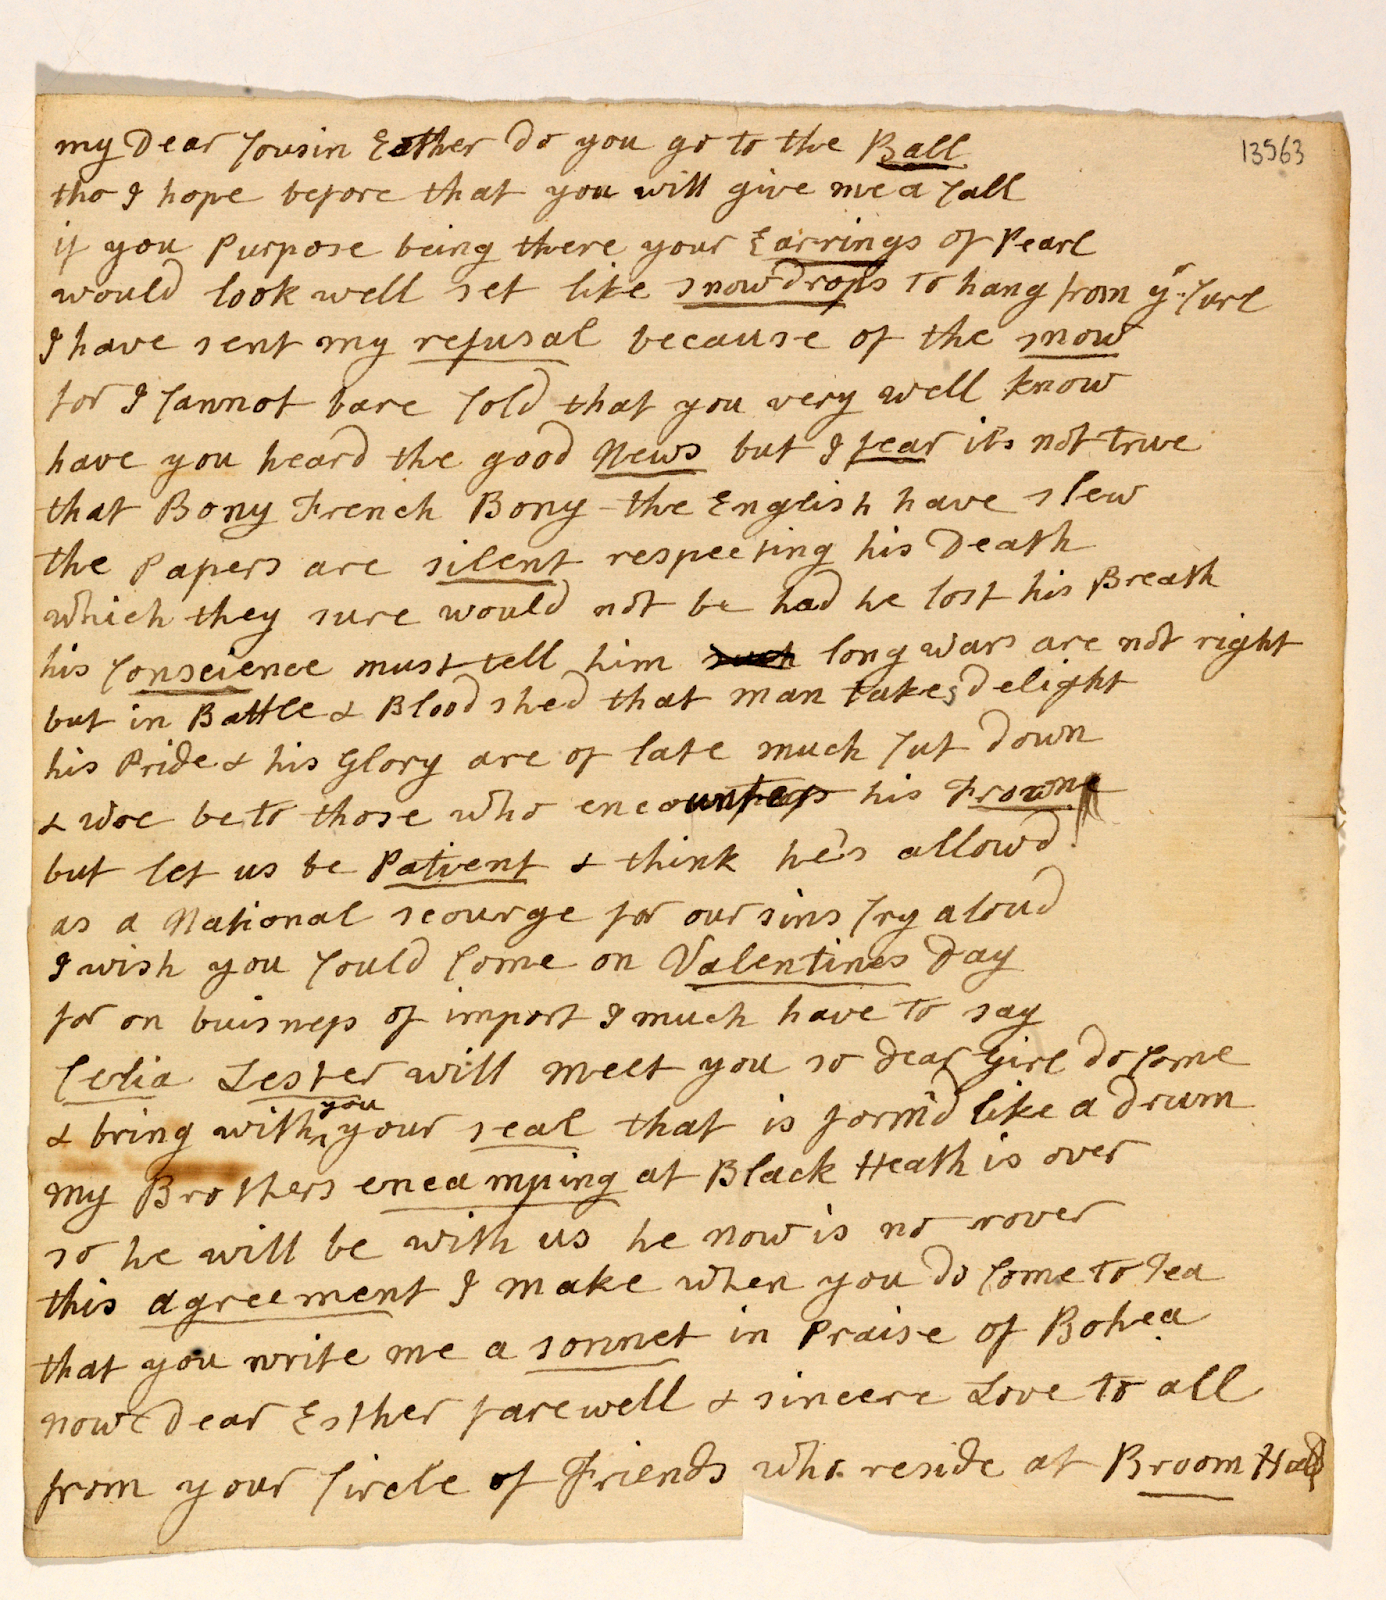 my Dear Cousin Esther do you go to the Ball
13563
tho I hope before that you will give me a Call
if you Purpose being there your Earrings of Pearl
would look well set like snowdrops to hang from yr Curl
I have sent my refusal because of the snow
for I Cannot bare Cold that you very well know
have you heard the good News but I fear its not true
that Bony French Bony the English have slew
the Papers are silent respecting his Death
which they sure would not be had he lost his Breath
his Conscience must tell him such long wars are not right
but in Battle & Blood shed that man takes delight
his Pride & his Glory are of late much Cut down
& woe be to those who encounters his Frown
but let us be Patient & think he's allowd
as a National scourge for our sins Cry aloud
I wish you Could Come on Valentines Day
for on buisness of import I much have to say
Celia Lester will meet you so dear Girl do Come
& bring with you your seal that is form'd like a drum
my Brothers encamping at Black Heath is over
so he will be with us he now is no rover
this agreement I make when you do Come to Tea
that you write me a sonnet in Praise of Bohea
now dear Esther farewell & sincere Love to all
from your Circle of Friends who reside at Broom Hall